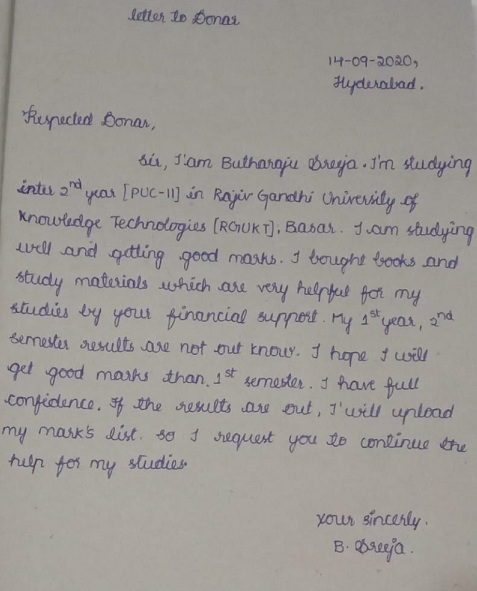 letter to Donar
14-09-2020,
Hyderabad.
Respected Donar,
Sir, I'am Butharaju Sreeja. I'm studying
inter 2nd year [PUC-II] in Rajiv Gandhi University of
Knowledge Technologies [RGUKT], Basar. I am studying
well and getting good marks. I bought books and
study materials which are very helpful for my
studies by your financial support. My 1st year, 2nd
semester results are not out know. I hope I will
get good marks than 1st semester. I have full
confidence. If the results are out, I'will upload
my mark's list. so I request you to continue the
help for my studies.
your sincerly.
B. Sreeja.